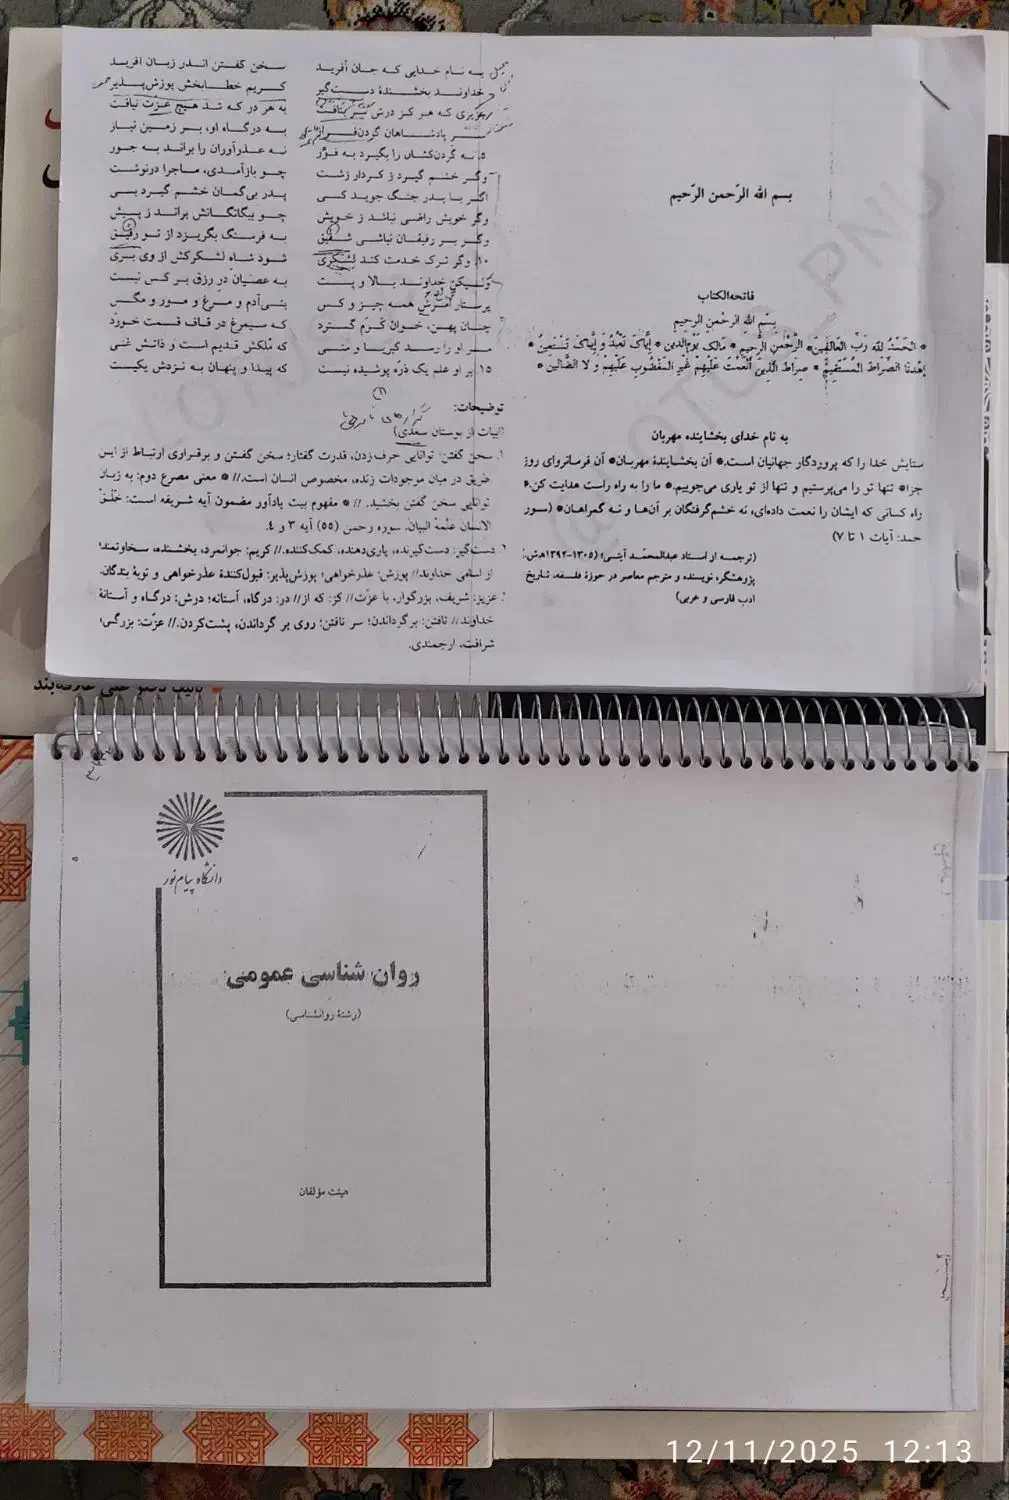 بسم الله الرّحمن الرّحیم
فاتحه‌الکتاب
بِسْمِ اللهِ الرحْمنِ الرحِیمِ
* الْحَمْدُ للهِ رَبِّ الْعَالَمِینَ* الرَّحْمنِ الرَّحِیمِ * مَالِکِ یَوْمِ‌الدینِ * إِیَّاکَ نَعْبُدُ وَ إِیَّاکَ نَسْتَعِینُ *
اِهْدِنَا الصِّرَاطَ الْمُسْتَقِیمَ * صِرَاطَ الَّذِینَ أَنْعَمْتَ عَلَیْهِمْ غَیْرِ الْمَغْضُوبِ عَلَیْهِمْ وَ لَا الضَّالِّینَ *
به نام خدای بخشاینده مهربان
ستایش خدا را که پروردگار جهانیان است.* آن بخشایندهٔ مهربان* آن فرمانروای روز
جزا* تنها تو را می‌پرستیم و تنها از تو یاری می‌جوییم.* ما را به راه راست هدایت کن.*
راه کسانی که ایشان را نعمت داده‌ای، نه خشم‌گرفتگان بر آن‌ها و نه گمراهان* (سور
حمد: آیات ۱ تا ۷)
(ترجمه از استاد عبدالمحمّد آیتی؛ (۱۳۰۵-۱۳۹۲ه‍.ش.)
پژوهشگر، نویسنده و مترجم معاصر در حوزهٔ فلسفه، تاریخ
ادب فارسی و عربی)
به نام خدایی که جان آفرید سخن گفتن اندر زبان آفرید
خداوند بخشندهٔ دست‌گیر کریم خطابخش پوزش‌پذیر
عزیزی که هر کز درش سر بتافت به هر در که شد هیچ عزّت نیافت
سر پادشاهان گردن‌فراز به درگاه او، بر زمین نیاز
۵. نه گردن‌کشان را بگیرد به فوْر نه عذرآوران را براند به جور
وگر خشم گیرد ز کردار زشت چو بازآمدی، ماجرا درنوشت
اگر با پدر جنگ جوید کسی پدر بی‌گمان خشم گیرد بسی
وگر خویش راضی نباشد ز خویش چو بیگانگانش براند ز پیش
وگر بر رفیقان نباشی شفیق به فرسنگ بگریزد از تو رفیق
۱۰. وگر ترک خدمت کند لشکری شود شاه لشکرکش از وی بری
ولیکن خداوند بالا و پست به عصیان در رزق بر کس نبست
پرستار امرش همه چیز و کس بنی‌آدم و مرغ و مور و مگس
چنان پهن، خوان کَرَم گسترد که سیمرغ در قاف قسمت خورد
مر او را رسد کبریا و منی که مُلکش قدیم است و ذاتش غنی
۱۵. بر او علم یک ذرّه پوشیده نیست که پیدا و پنهان به نزدش یکیست
توضیحات:
ابیات از بوستان سعدی)
۱. سخن گفتن: توانایی حرف‌زدن، قدرت گفتار؛ سخن گفتن و برقراری ارتباط از این
طریق در میان موجودات زنده، مخصوص انسان است.// * معنی مصرع دوم: به زبان
توانایی سخن گفتن بخشید. // * مفهوم بیت یادآور مضمون آیه شریفه است: خَلَقَ
الانسان علّمهُ البیان. سوره رحمن (۵۵) آیه ۳ و ۴.
۲. دست‌گیر: دست‌گیرنده، یاری‌دهنده، کمک‌کننده.// کریم: جوانمرد، بخشنده، سخاوتمند؛
از اسامی خداوند// پوزش: عذرخواهی؛ پوزش‌پذیر: قبول‌کنندهٔ عذرخواهی و توبهٔ بندگان.
عزیز: شریف، بزرگوار، با عزّت// کز: که از// در: درگاه، آستانه؛ درش: درگاه و آستانهٔ
خداوند// تافتن: برگرداندن؛ سر تافتن: روی بر گرداندن، پشت‌کردن.// عزّت: بزرگی،
شرافت، ارجمندی.
دانشگاه پیام نور
روان شناسی عمومی
(رشتهٔ روانشناسی)
هیئت مؤلفان
12/11/2025 12:13